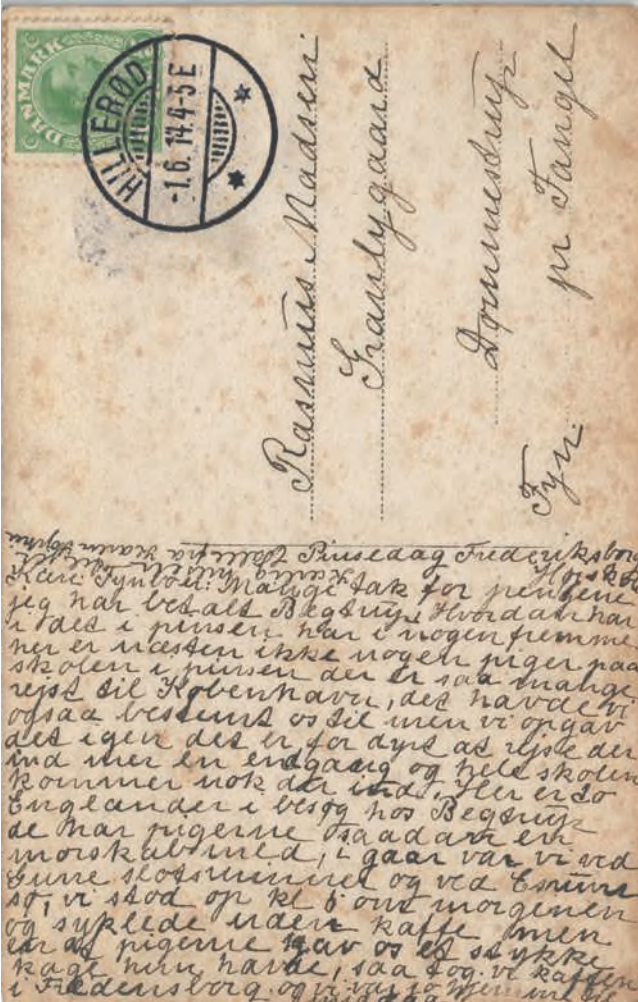 DANMARK
HILLERØD
-1.6.14.4-5E
Rasmus Madsen
Granlygaard
pr Fangel
Fyn
Pinsedag Frederiksborg
Højskole
Mange tak for pengene
jeg har betalt Begtrup, Hvordan har
i det i pinsen har i nogen fremme
her er næsten ikke nogen piger paa
skolen i pinsen der er saa mange
rejst til København, det havde vi
ogsaa bestemt os til men vi opgav
det igen det er for dyrt at rejse der
ind mer en engang og hele skolen
kommer nok der ind. Her er to
Englænder i besøg hos Begtrup
de har pigerne saadan en
morskab med, i gaar var vi ved
Gurre slotsruiner og ved Esrum
sø, vi stod op kl 5 om morgenen
og syklede uden kaffe men
en af pigerne gav os et stykke
kage hun havde, saa tog vi kaffen
i Fredensborg og vi var jo hjemme